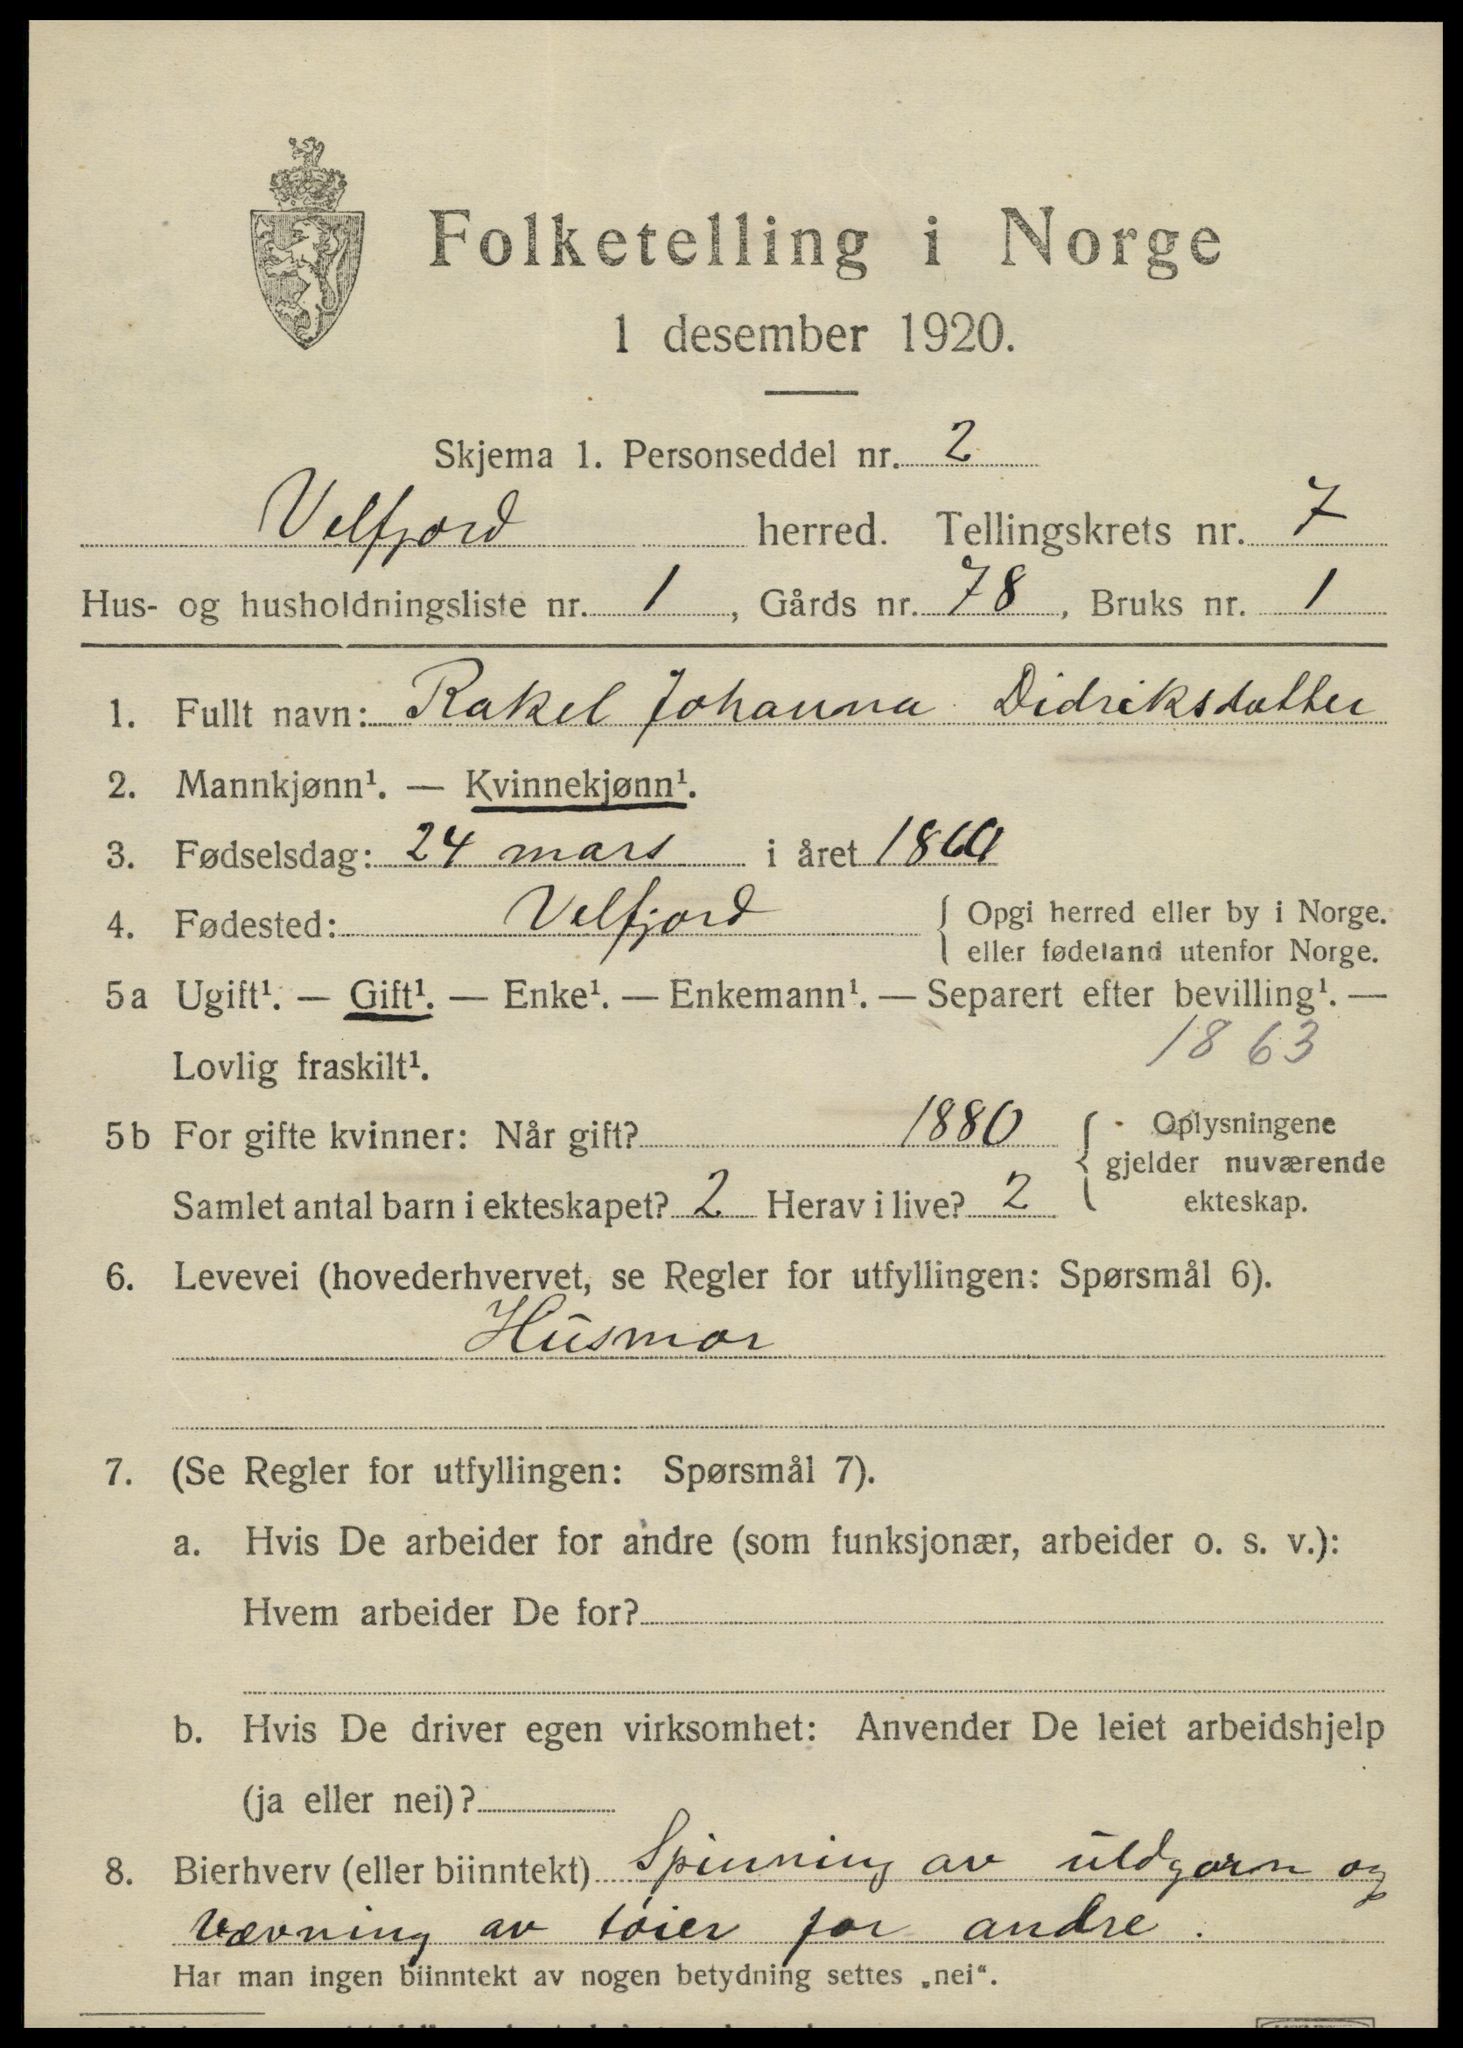 Folketelling i Norge
1 desember 1920.
Skjema 1. Personseddel nr. 2
Velfjord herred. Tellingskrets nr. 7
Hus- og husholdningsliste nr. 1, Gårds nr. 78, Bruks nr. 1
1. Fullt navn: Rakel Johanna Didriksdatter
2. Mannkjønn¹. — Kvinnekjønn¹.
3. Fødselsdag: 24 mars i året
4. Fødested: Velfjord { Opgi herred eller by i Norge.
eller fødeland utenfor Norge.
5a Ugift¹. — Gift¹. — Enke¹. — Enkemann¹. — Separert efter bevilling¹. —
Lovlig fraskilt¹. 1863
5b For gifte kvinner: Når gift? 1880 { Oplysningene
gjelder nuværende
Samlet antal barn i ekteskapet? 2 Herav i live? 2 ekteskap.
6. Levevei (hovederhvervet, se Regler for utfyllingen: Spørsmål 6).
Husmor
7. (Se Regler for utfyllingen: Spørsmål 7).
a. Hvis De arbeider for andre (som funksjonær, arbeider o. s. v.):
Hvem arbeider De for?
b. Hvis De driver egen virksomhet: Anvender De leiet arbeidshjelp
(ja eller nei)?
8. Bierhverv (eller biinntekt) Spinning av uldgarn og
vævning av tøier for andre.
Har man ingen biinntekt av nogen betydning settes „nei“.